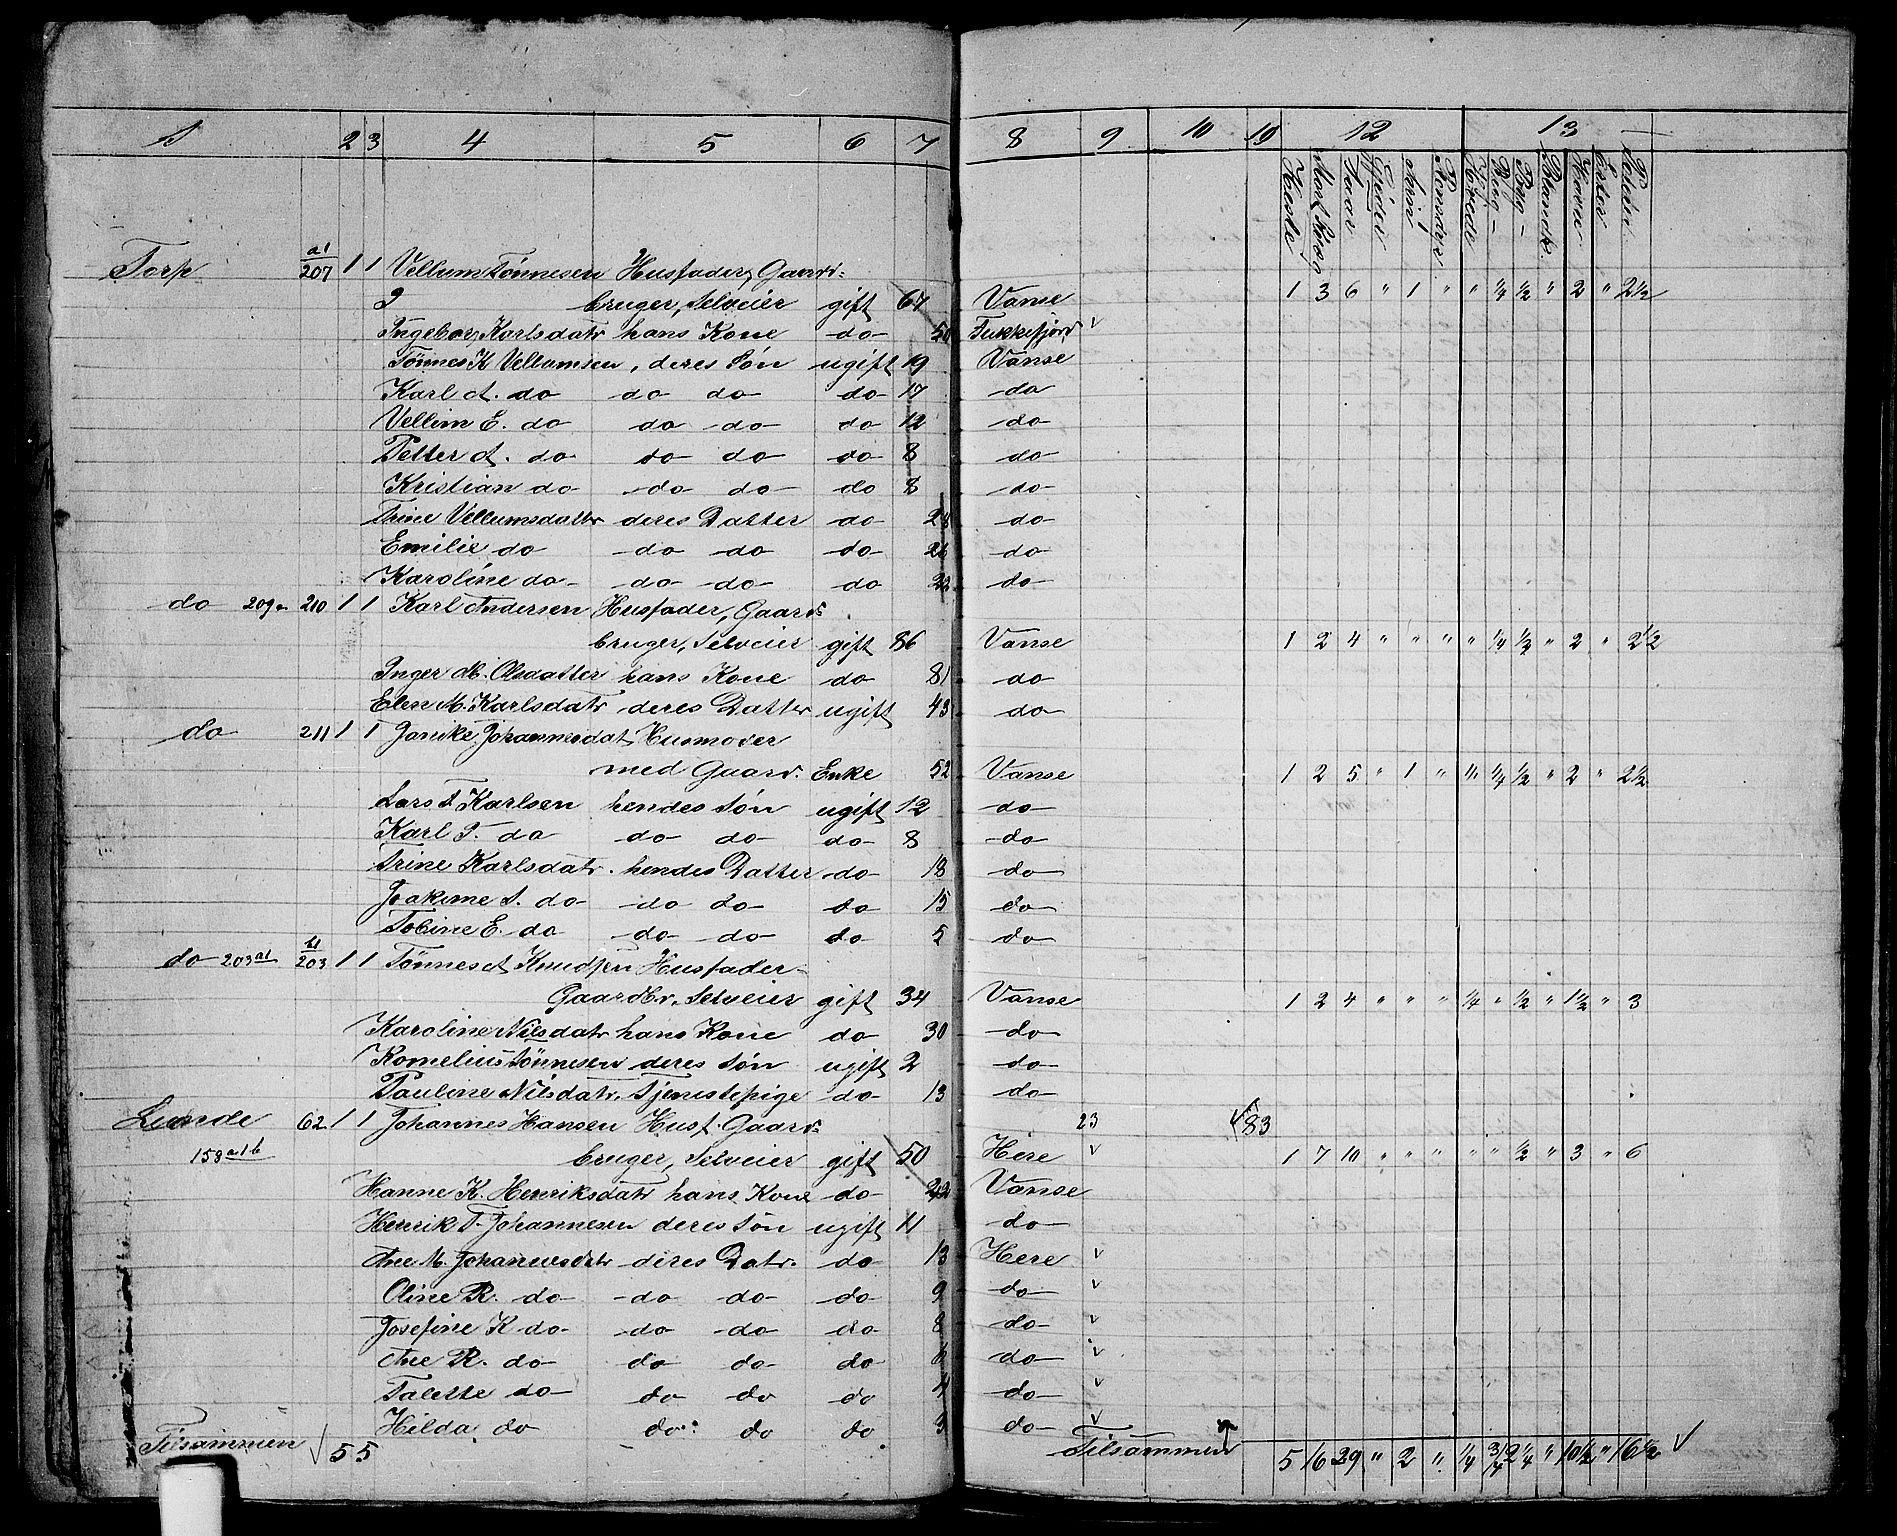 1 2 3 4 5 6 7 8 9 10 11 12 13
Heste Stort Kvæg Faar Gjeder Sviin Rensdyr Hvede Rug Byg Blandk. Havre Erter Poteter
Torp a1/207 1 1 Vellum Tønnesen Husfader, Gaard-
bruger, Selveier gift 67 Vanse 1 3 6 " 1 " " 1/4 1/2 " 2 " 2 1/2
Ingeborg Karlsdatr hans Kone do 50 Fækkefjord v
Tønnes K Vellumsen, deres Søn ugift 19 Vanse
Karl A. do do do do 17 do
Vellim E. do do do do 12 do
Petter A. do do do do 8 do
Kristian do do do do 8 do
Trine Vellumsdattr deres Datter do 28 do
Emilie do do do do 26 do
Karoline do do do do 22 do
do 209 210 1 1 Karl Andersen Husfader, Gaard-
bruger, Selveier gift 86 Vanse 1 2 4 " " " " 1/4 1/2 " 2 " 2 1/2
Inger M. Olsdatter hans Kone do 81 do
Elen M. Karlsdatr deres Datter ugift 43 do
do 211 1 1 Janike Johannesdat. Husmoder
med Gaard. Enke 52 Vanse 1 2 5 " 1 " " 1/4 1/2 " 2 " 2 1/2
Lars T Karlsen hendes Søn ugift 12 do
Karl T. do do do do 8 do
Trine Karlsdatr. hendes Datter do 18 do
Joakime S. do do do do 15 do
Tobine E. do do do do 5 do
do 203 a1 b1/203 1 1 Tønnes A Knudsen Husfader
Gaardbr. Selveier gift 34 Vanse 1 2 4 " " " 1/4 " 1/2 " 1 1/2 " 3
Karoline Nilsdatr hans Kone do 30 do
Kornelius Tønnesen deres Søn ugift 2 do
Pauline Nilsdatr. Tjenestepige do 13 do
Lunde 62 1 1 Johannes Hansen Husf. Gaard- 23 83
158 a1b bruger, Selveier gift 50 Here v 1 7 10 " " " " " 1/2 " 3 " 6
Hanne K. Henriksdatr hans Kone do 42 Vanse
Henrik T. Johannesen deres Søn ugift 11 do
Ane M. Johannesdatr deres Datr. do 13 Here v
Oline R. do do do do 9 do v
Josefine K do do do do 8 do v
Ane R. do do do do 6 do v
Talette do do do do 4 do v
Hilda do do do do 3 do v
Tilsammen √ 55 Tilsammen 5 16 29 " 2 " 1/4 3/4 2 1/4 " 10 1/2 " 16 1/2 √